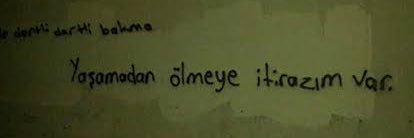 dertli dertli bakma
Yaşamadan ölmeye itirazım var.